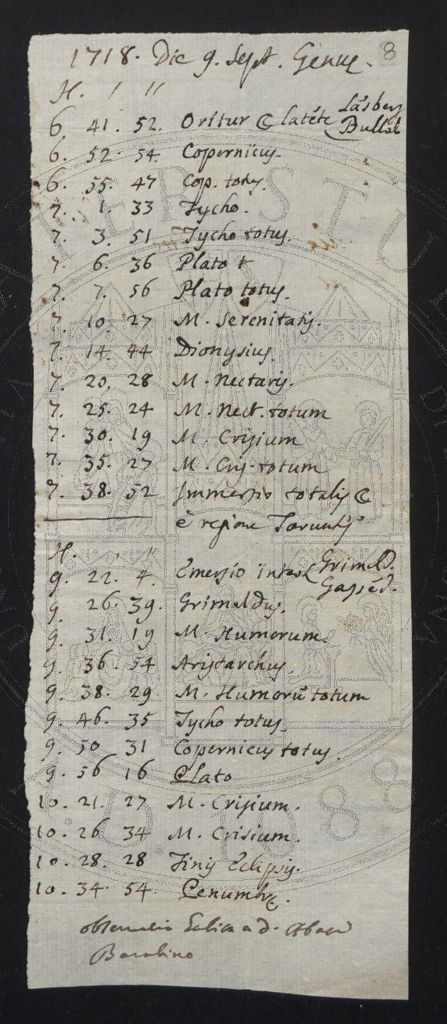 1718. Die 9. Sept. Genuę. 8
H. ' ''
6. 41. 52. Oritur ☾ latēte Lāsberg
Bullial
6. 52. 54 Copernicus.
6. 55. 47 Cop. totus.
7. 1. 33 Tycho.
7. 3. 51 Tycho totus.
7. 6. 36 Plato t
7. 7. 56 Plato totus.
7. 10. 27 M. Serenitatis.
7. 14. 44 Dionysius.
7. 20. 28 M. Nectaris.
7. 25. 24 M. Nect. totum
7. 30. 19 M. Crisium
7. 35. 27 M. Cris. totum
7. 38. 52 Immersio totalis ☾
è regione Taruntij
H. ' ''
9. 22. 4. Emersio inter Grimald.
Gassēd.
9 26. 39. Grimaldus.
9. 31. 19 M. Humorum
9. 36. 54 Aristarchus.
9. 38. 29 M. Humorū totum
9. 46. 35 Tycho totus.
9. 50 31 Copernicus totus.
9. 56 16 Plato
10. 21. 27 M. Crisium.
10. 26 34 M. Crisium.
10. 28. 28 Finis Eclipsis.
10. 34. 54. Penumbrę.
a d.